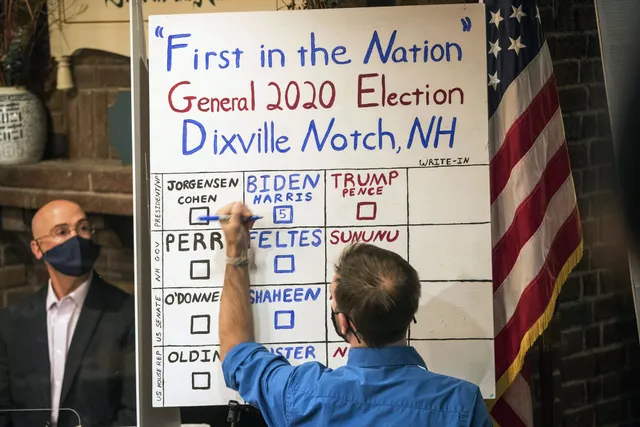 "First in the Nation"
General 2020 Election
Dixville Notch, NH
WRITE-IN
PRESIDENT/VP JORGENSEN BIDEN TRUMP
COHEN HARRIS PENCE
5
NH GOV PERR FELTES SUNUNU
US SENATE O'DONNE SHAHEEN
US HOUSE REP OLDIN STER N